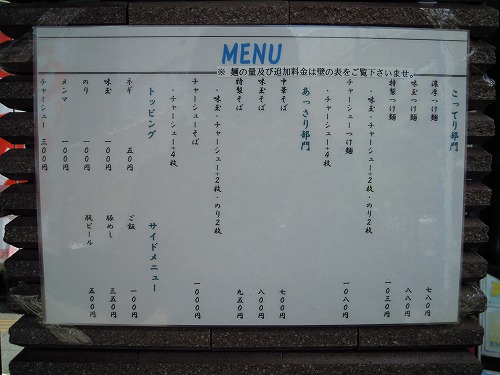 MENU
※ 麺の量及び追加料金は壁の表をご覧下さいませ。
こってり部門
濃厚つけ麺 七八〇円
味玉つけ麺 八八〇円
特製つけ麺 一〇三〇円
・味玉・チャーシュー+2枚・のり2枚
チャーシューつけ麺 一〇八〇円
・チャーシュー+4枚
あっさり部門
中華そば 七〇〇円
味玉そば 八〇〇円
特製そば 九五〇円
・味玉・チャーシュー+2枚・のり2枚
チャーシューそば 一〇〇〇円
・チャーシュー+4枚
トッピング
ネギ 五〇円
味玉 一〇〇円
のり 一〇〇円
メンマ 一〇〇円
チャーシュー 三〇〇円
サイドメニュー
ご飯 一〇〇円
豚めし 三五〇円
瓶ビール 五〇〇円